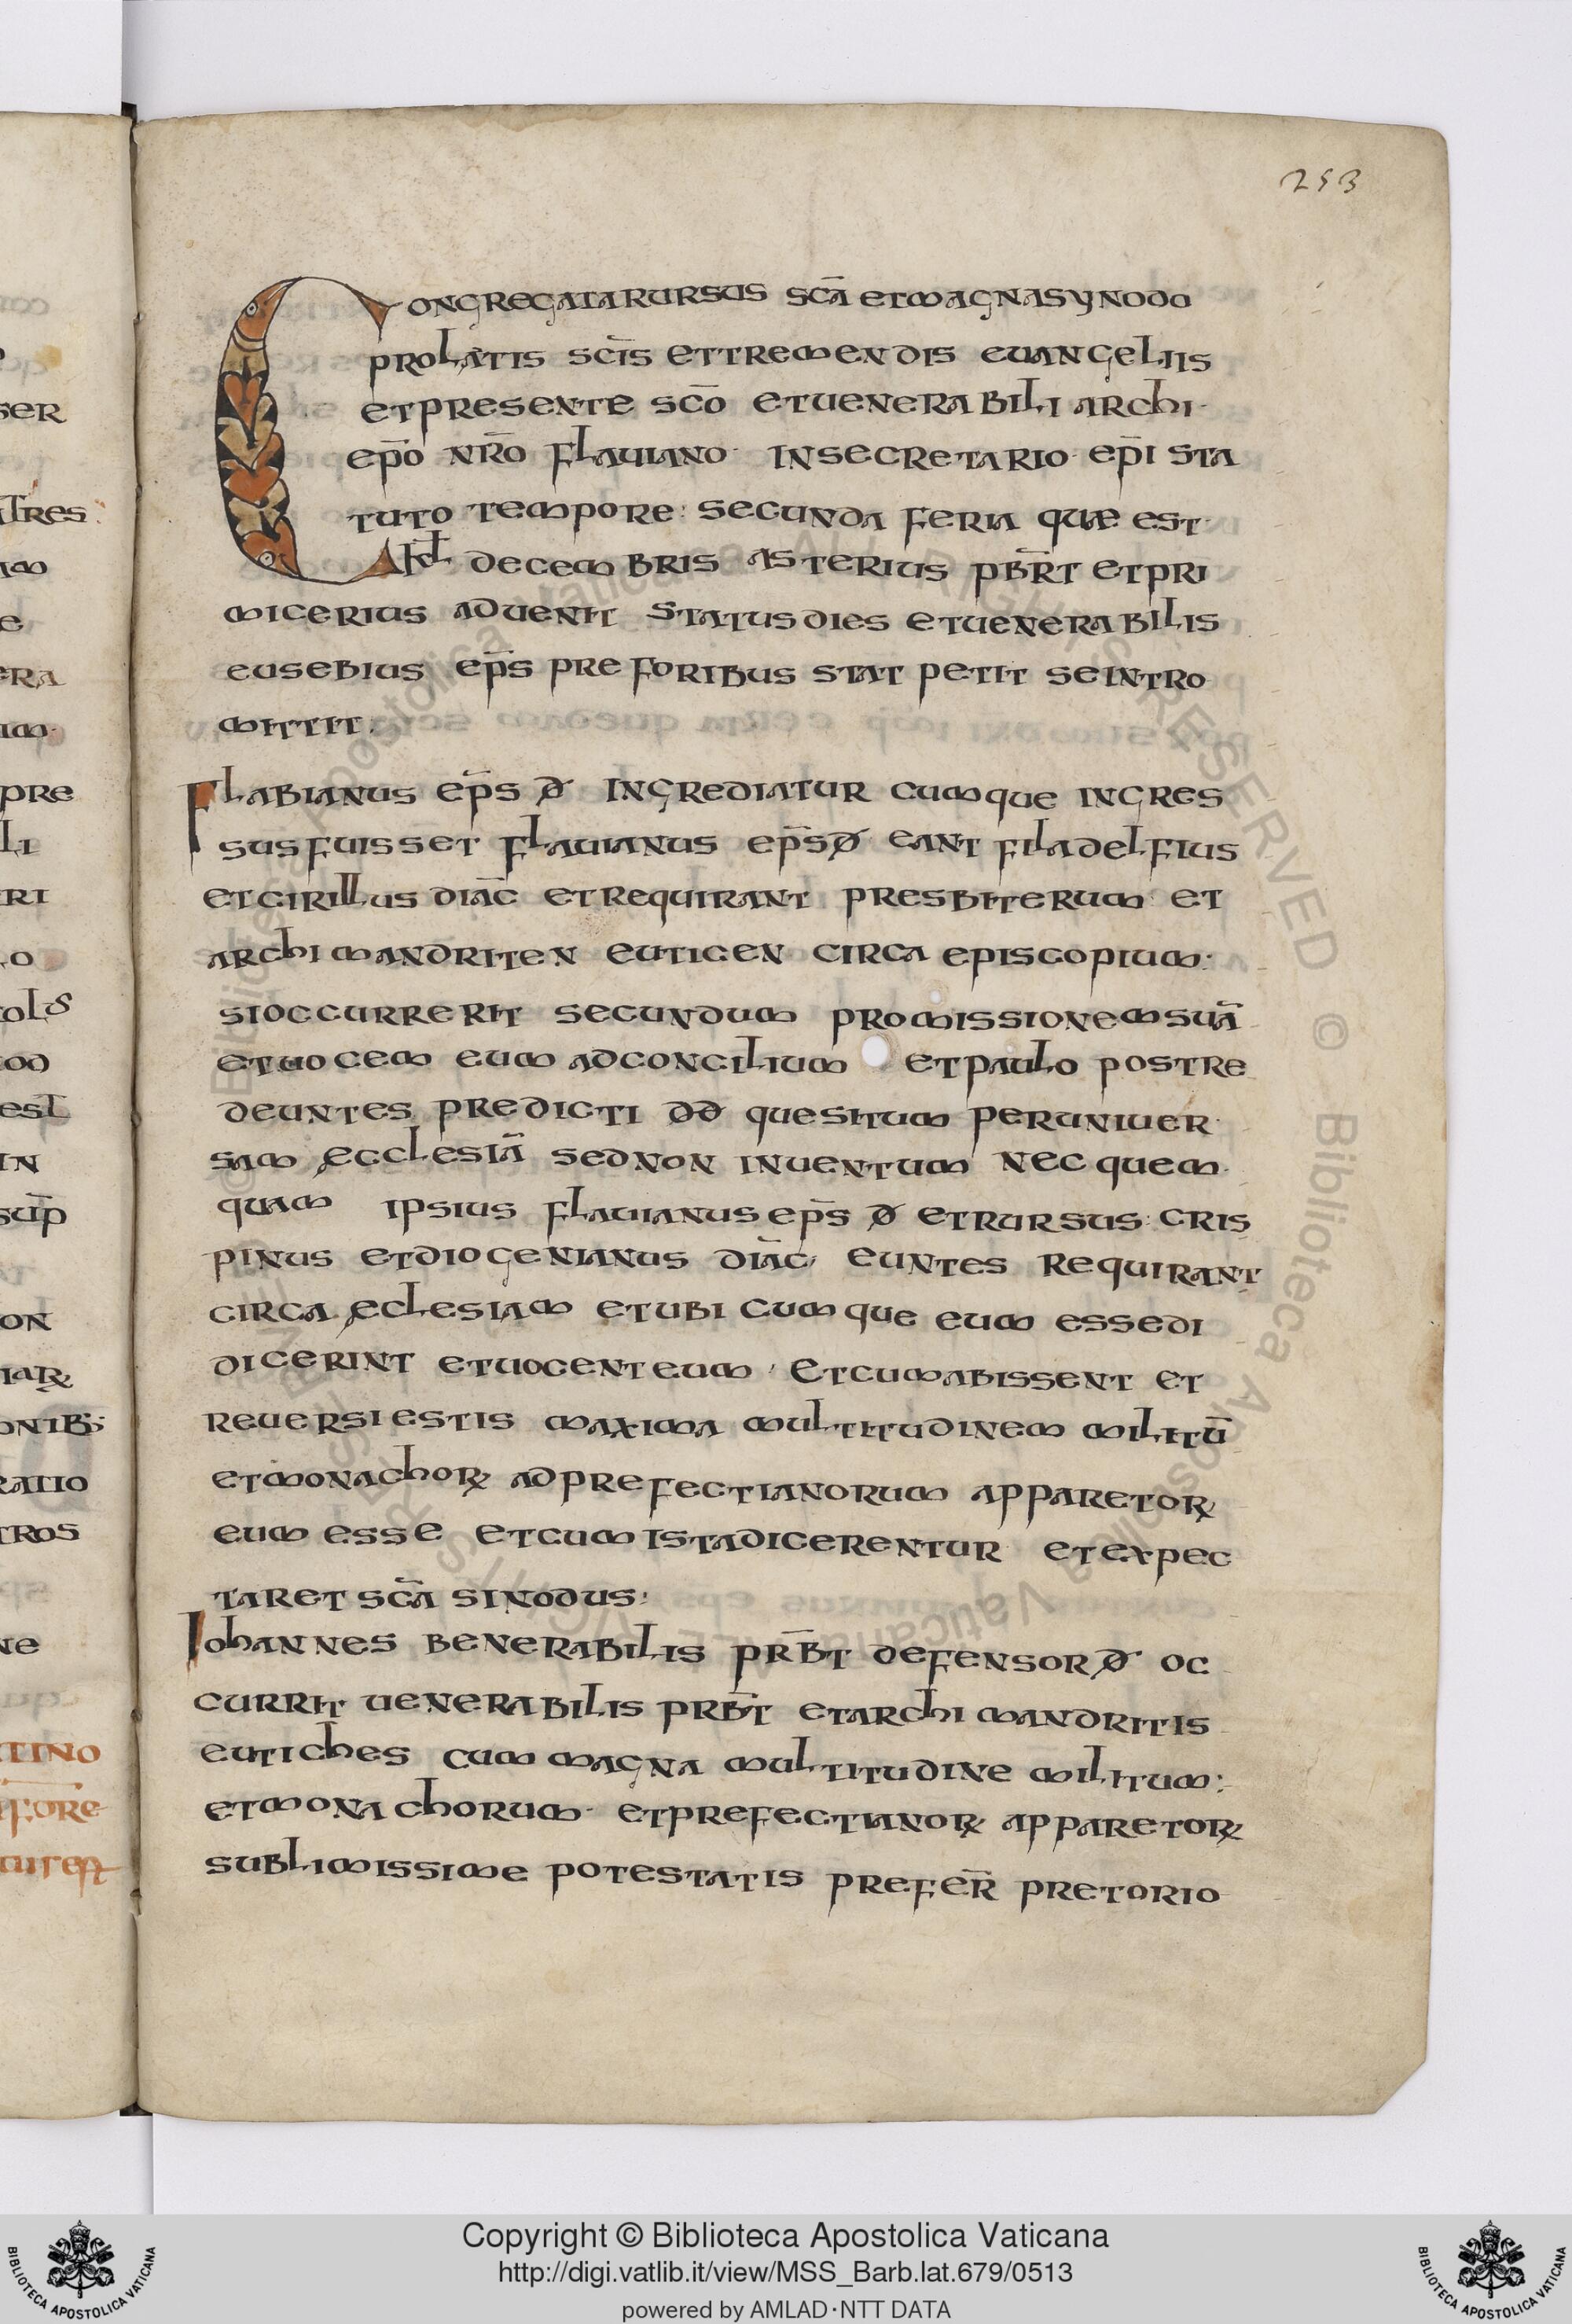 253
CONGREGATA RURSUS SCĀ ET MAGNA SYNODO
PROLATIS SCĪS ET TREMENDIS EUANGELIIS
ET PRESENTE SCŌ ET UENERABILI ARCHI·
EP̄O NR̄O FLAUIANO· IN SECRETARIO EP̄I STA
TUTO TEMPORE: SECUNDA FERIA QUAE EST·
KL̄ DECEMBRIS ASTERIUS PBR̄T ET PRI
MICERIUS ADUENIT STATUS DIES ET UENERABILIS
EUSEBIUS EP̄S PRE FORIBUS STAT PETIT SE INTRO
MITTIT:
FLABIANUS EP̄S Đ INGREDIATUR CUMQUE INGRES
SUS FUISSET FLAUIANUS EP̄S Đ EANT FILADELFIUS
ET CIRILLUS DIĀC ET REQUIRANT PRESBITERUM ET
ARCHIMANDRITEN EUTICEN CIRCA EPISCOPIUM:
SI OCCURRERIT SECUNDUM PROMISSIONEM SUĀ
ET UOCEM EUM AD CONCILIUM ET PAULO POST RE
DEUNTES PREDICTI DĐ QUESITUM PER UNIUER·
SAM ECCLESIĀ SED NON INUENTUM NEC QUEM·
QUAM IPSIUS FLAUIANUS EP̄S Đ ET RURSUS: CRIS
PINUS ET DIOGENIANUS DIĀC EUNTES REQUIRANT
CIRCA ECLESIAM ET UBICUMQUE EUM ESSE DI
DICERINT ET UOCENT EUM · ET CUM ABISSENT ET
REUERSI ESTIS MAXIMA MULTITUDINEM MILITŪ
ET MONACHOꝜ AD PREFECTIANORUM APPARETOꝜ
EUM ESSE ET CUM ISTA DICERENTUR ET EXPEC
TARET SCĀ SINODUS:
IOHANNES BENERABILIS PRB̄T DEFENSOR Đ OC
CURRIT UENERABILIS PRB̄T ET ARCHIMANDRITIS
EUTICHES CUM MAGNA MULTITUDINE MILITUM:
ET MONACHORUM· ET PREFECTIANOꝜ APPARETOꝜ
SUBLIMISSIME POTESTATIS PREFER̄ PRETORIO
Copyright © Biblioteca Apostolica Vaticana
http://digi.vatlib.it/view/MSS_Barb.lat.679/0513
powered by AMLAD·NTT DATA
BIBLIOTECA APOSTOLICA VATICANA
BIBLIOTECA APOSTOLICA VATICANA